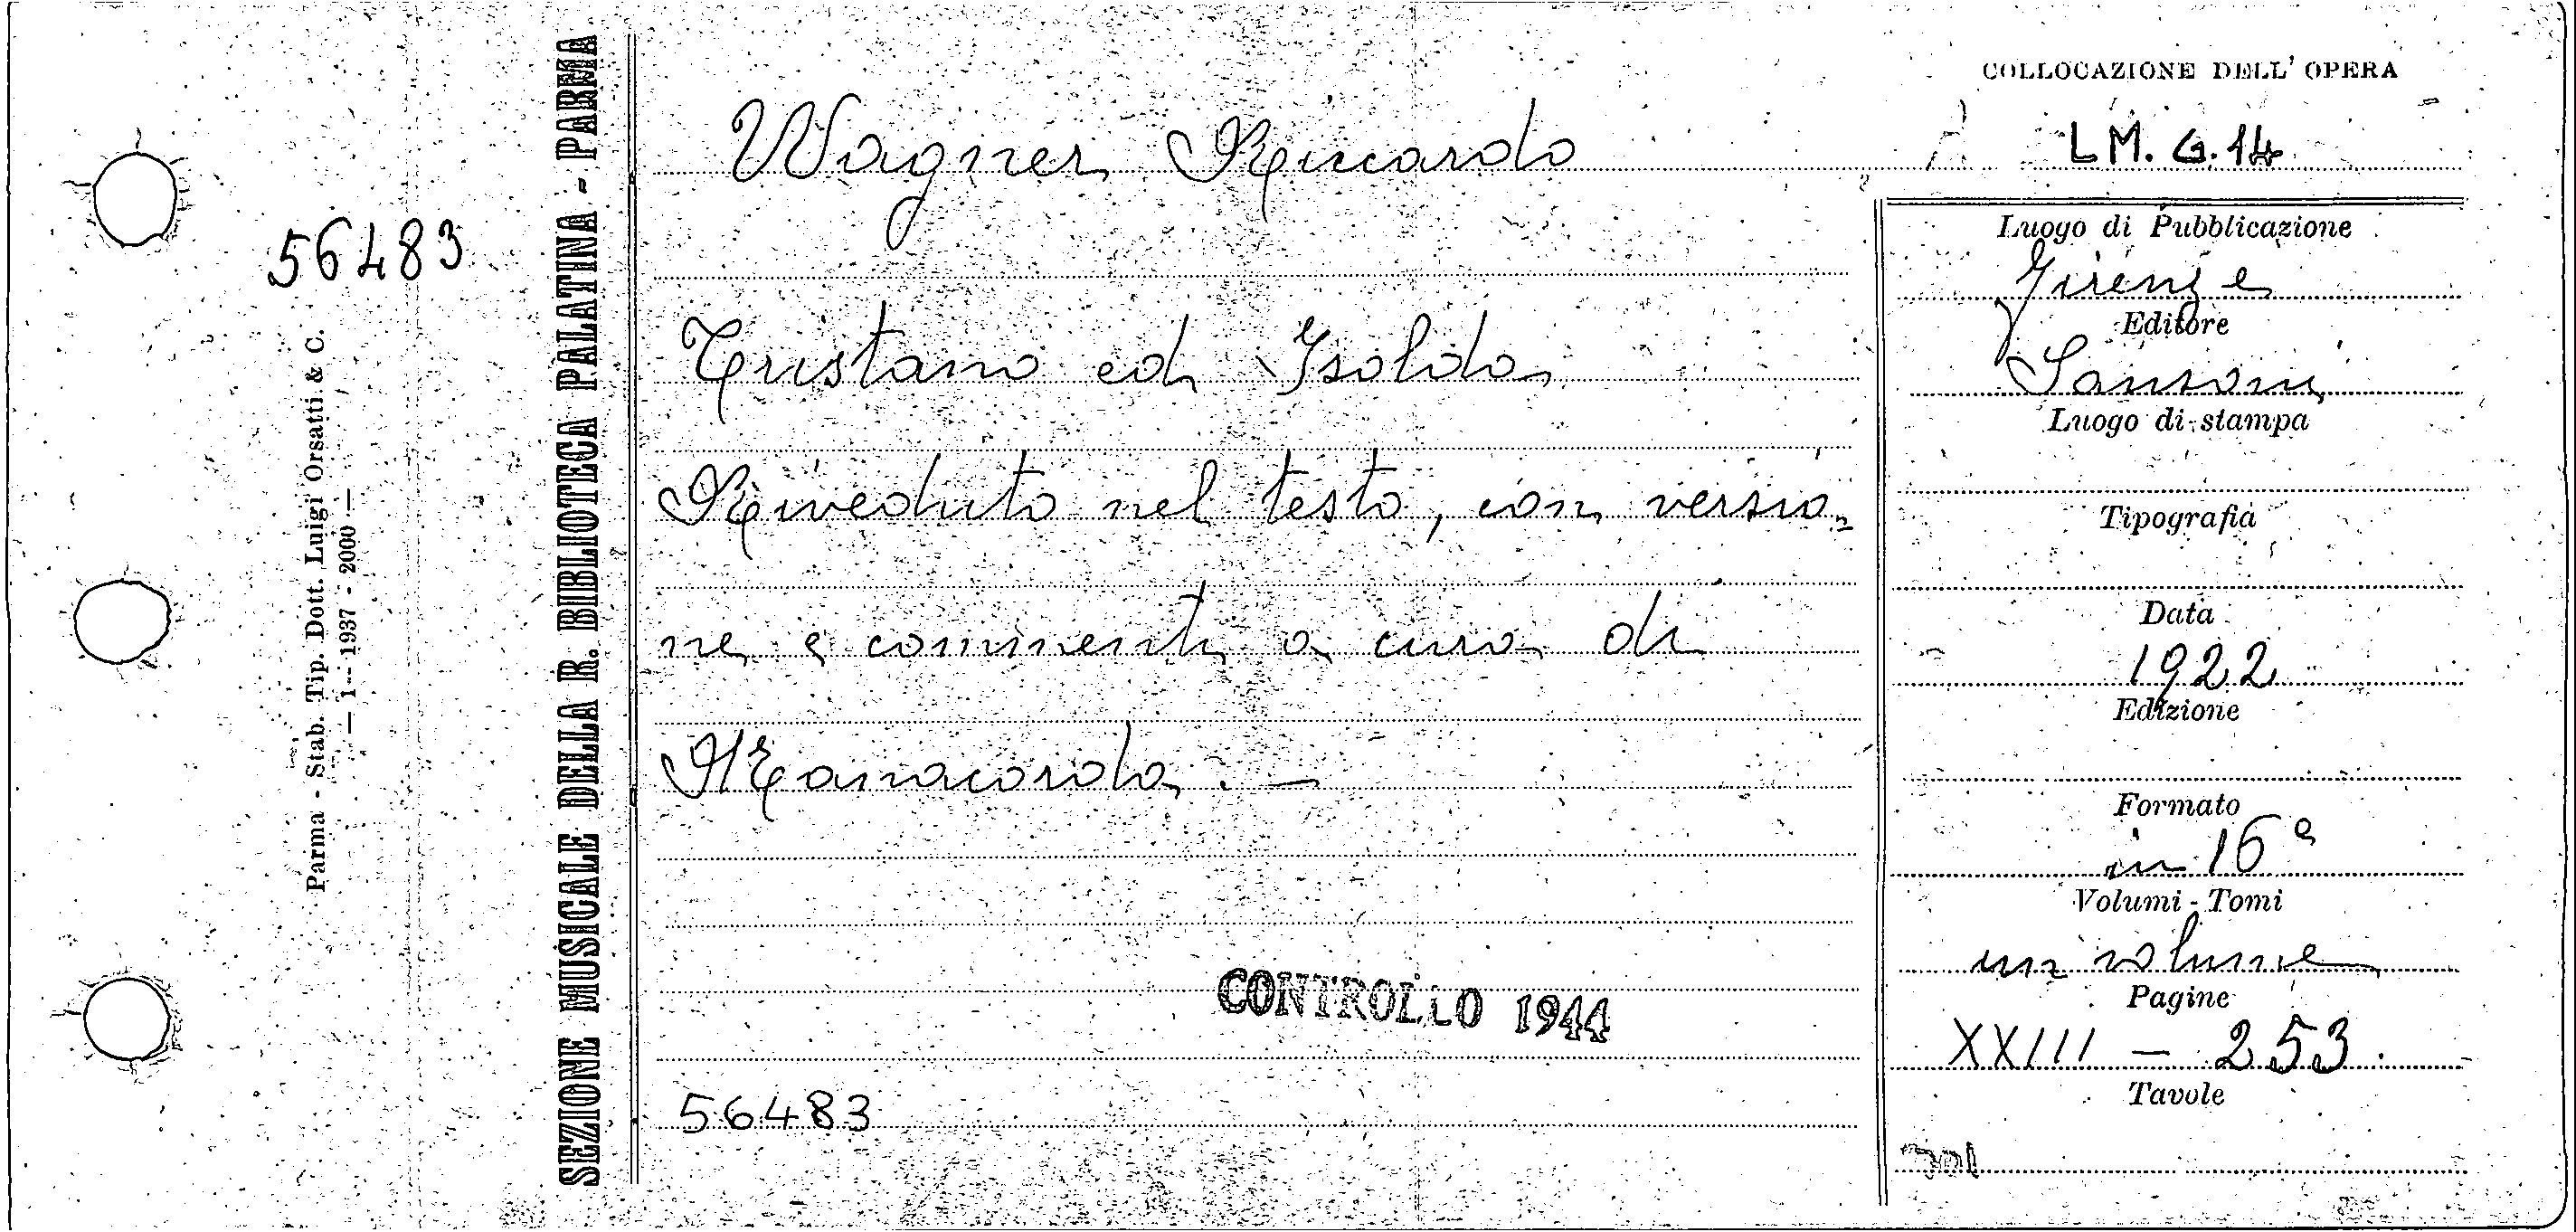 COLLOCAZIONE DELL' OPERA
LM. G. 14
Wagner Riccardo
56483
Tristano ed Isolda
Riveduto nel testo, con versio-
ne e commenti a cura di
Manacorda. —
CONTROLLO 1944
56483
Luogo di Pubblicazione
Firenze
Editore
Sansoni
Luogo di stampa
Tipografia
Data
1922
Edizione
Formato
in 16°
Volumi - Tomi
un volume
Pagine
XXIII — 253.
Tavole
SEZIONE MUSICALE DELLA R. BIBLIOTECA PALATINA - PARMA
Parma - Stab. Tip. Dott. Luigi Orsatti & C.
— 1 - 1937 - 2000 —